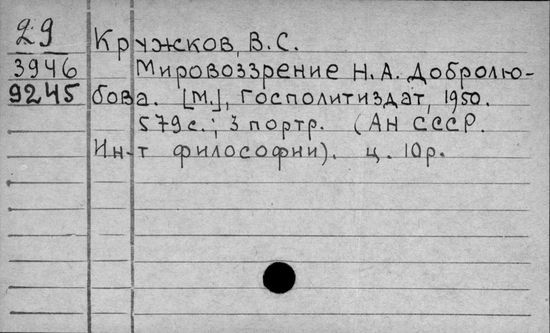 29
Кружков, В.С.
3946
Мировоззрение Н.А. Добролю-
9245
бова. [М.], Госполитиздат, 1950.
579с.; 3 портр. (АН СССР.
Ин-т философии). ц. 10р.